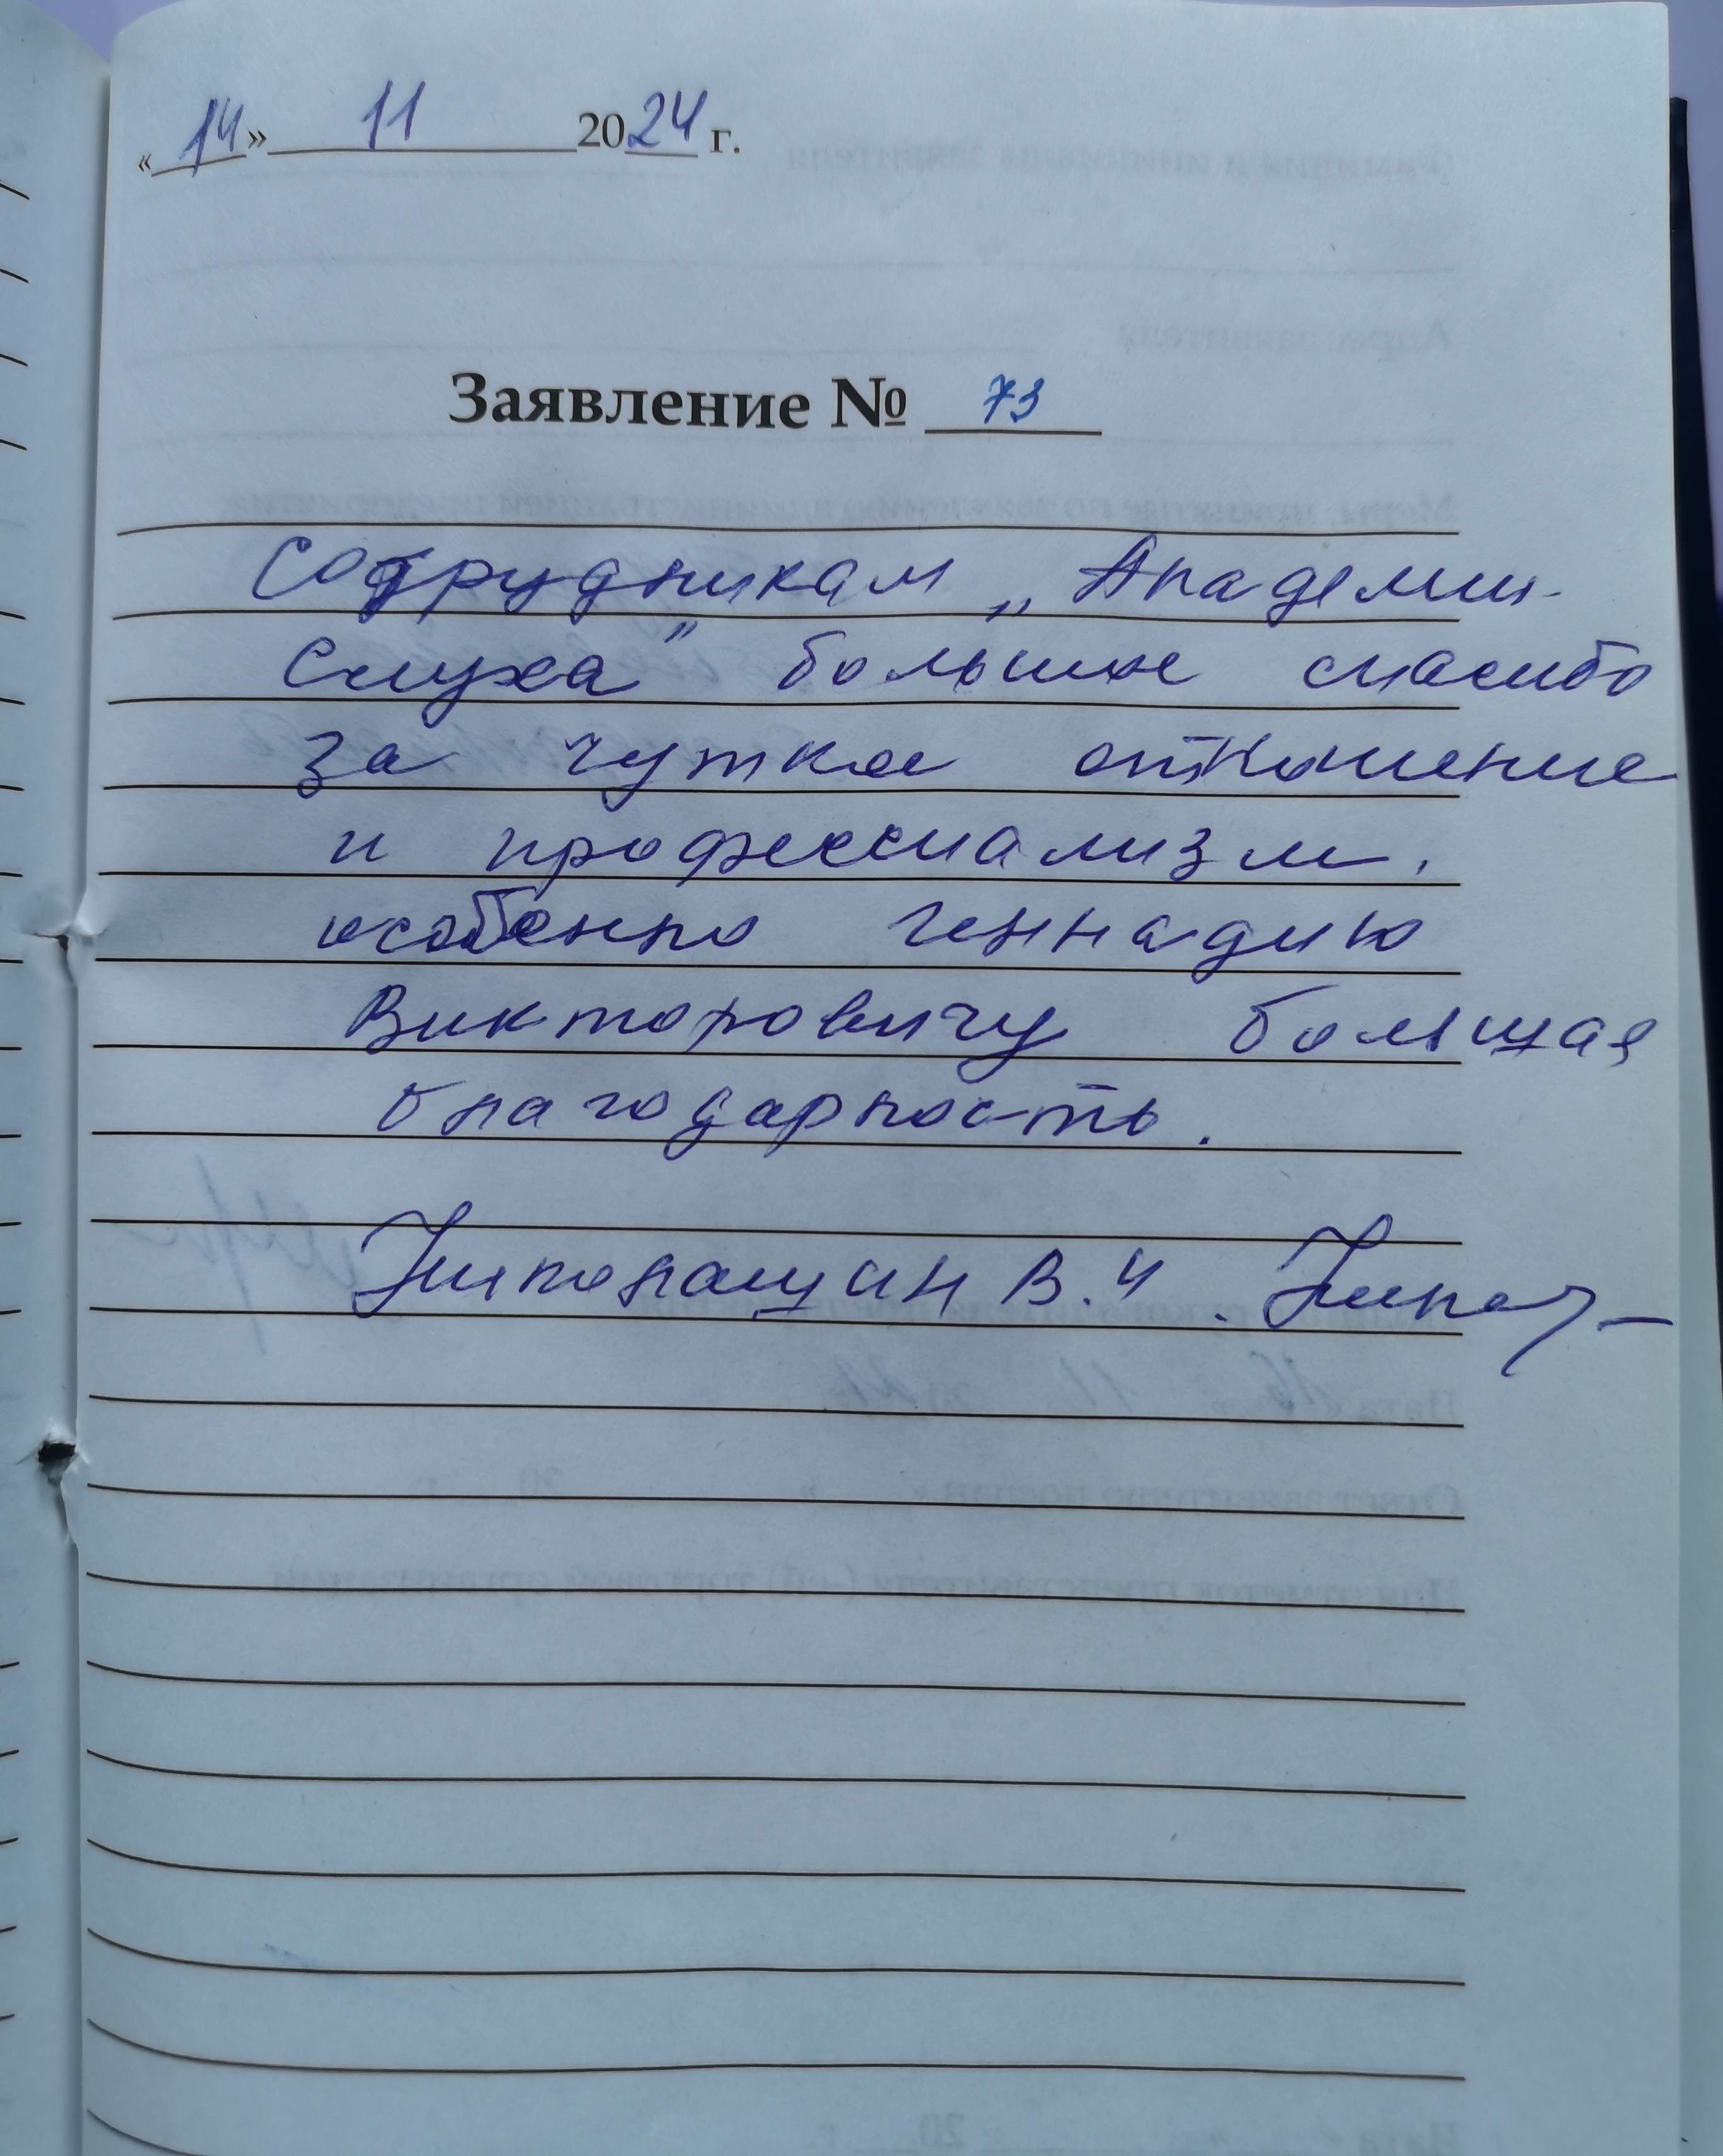 «14» 11 2024 г.
Заявление № 73
Сотрудникам „Академии
Слуха” большое спасибо
за чуткое отношение
и профессиализм,
особенно Геннадию
Викторовичу большая
благодарность.
В.И.